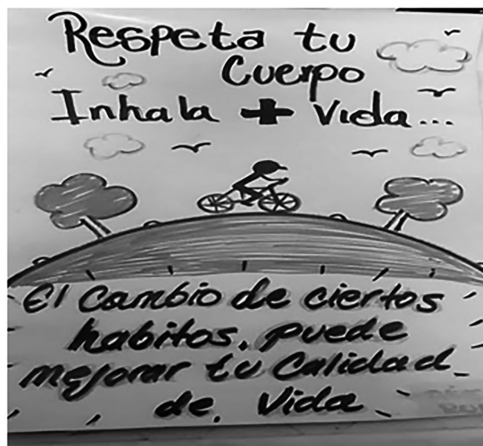 Respeta tu
Cuerpo
Inhala + Vida...
El Cambio de ciertos
habitos. puede
mejorar tu Calidad
de. Vida